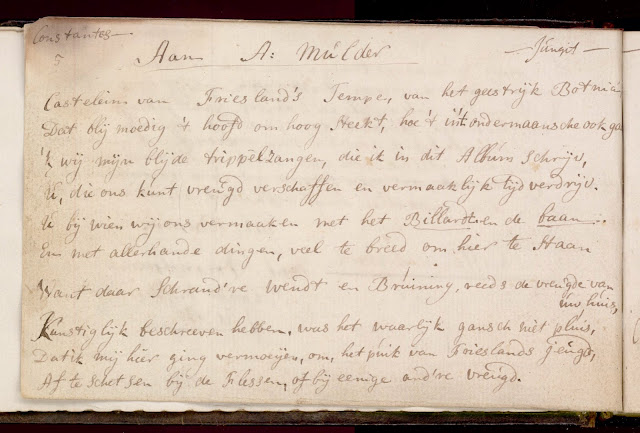 Constantes — Jungit —
5
Aan A: Mulder
Castelein van Friesland's Tempe, van het geestrijk Botnia
Dat blij moedig 't hoofd om hoog steekt, hoe 't in't ondermaansche ook ga
'k wij mijn blijde trippelzangen, die ik in dit Album schrijv,
U, die ons kunt vreugd verschaffen en vermaaklijk tijd verdrijv.
U bij wien wij ons vermaaken met het Billard en de baan
En met allerhande dingen, veel te breed om hier te staan
Want daar schrand're Wendt en Bruining, reeds de vreugde van
uw huis,
Kunstiglijk beschreeven hebben, was het waarlijk gansch niet pluis,
Dat ik mij hier ging vermoeijen, om, het puik van Frieslands jeugd,
Af te schetsen bij de Flessen, of bij eenige and're vreugd.